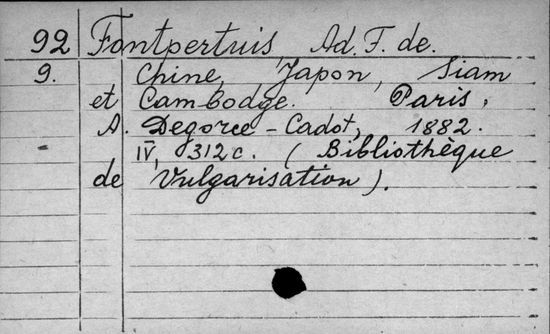 92 Fontpertuis Ad. F. de.
9. Chine, Japon, Siam
et Cambodge. Paris,
A. Degorce-Cadot, 1882.
IV, 312 c. (Bibliothèque
de Vulgarisation).